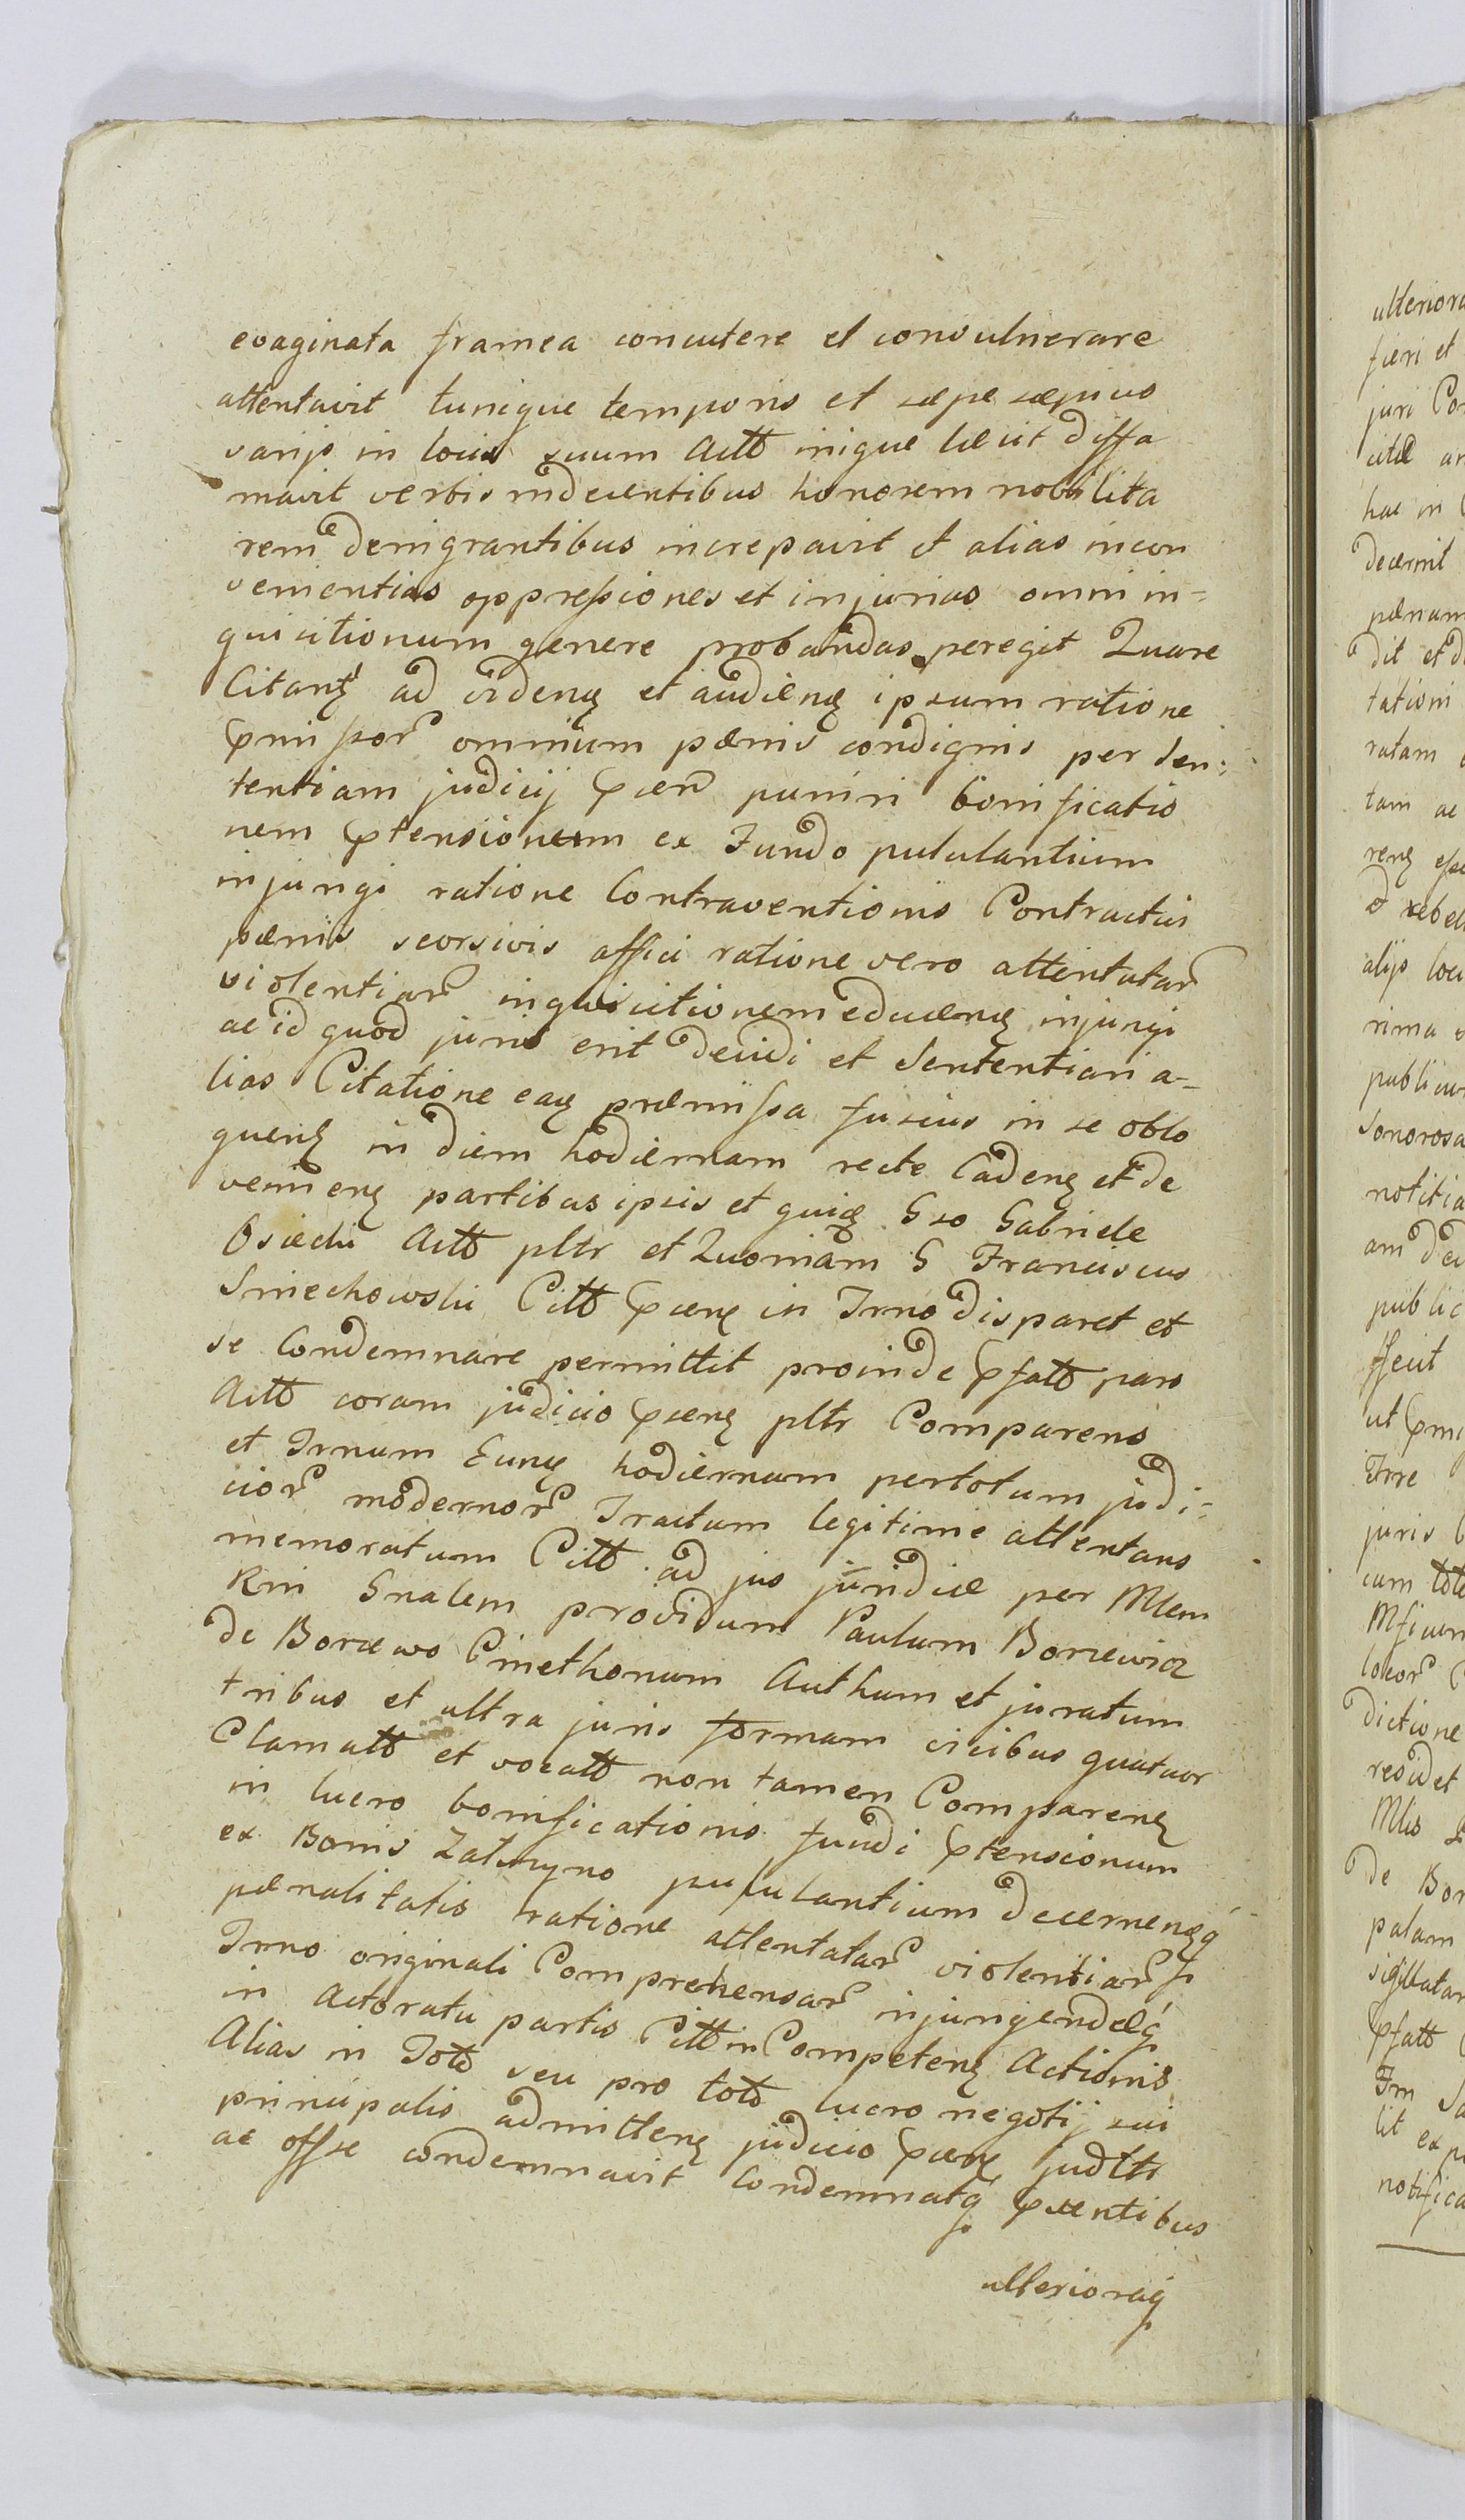 evaginata framea concutere et convulnerare
attentavit tunique temporis et sæpe sæpius
varijs in locis suum Actt inique læsit diffa
mavit verbis indecentibus honorem nobilita
rem denigrantibus increpavit et alias incon
venientias oppressiones et injurias omni in=
quisitionum genere probandas peregit Quare
Citant ad viden et audien ipsum ratione
pmissor omnium pænis condignis per Sen:
tentiam judicij psen puniri bonificatio
nem ptensionem ex Fundo pululantium
injungi ratione Contraventionis Contractus
pænis seorsivis affici ratione vero attentatar
violentiar inquisitionem educen injungi
ac id quod juris erit decidi et Sententiari a-
lias Citatione eaq præmissa fusius in se oblo
quen in diem hodiernam recte Caden et de
venien partibus ipsis et quidem Gso Gabriele
Osiecki Actt pltr et Quoniam G Franciscus
Smiechowski Citt psen in Trno disparet et
se Condemnare permittit proinde pfatt pars
Actt coram judicio psen pltr Comparens
et Trnum Eunq hodiernum pertotum judi=
cior modernor Tractum legitime attentans
memoratum Citt ad jus juridice per Mlem
Rni Gnalem providum Paulum Borzewicz
de Borzewo Cmethonum Authum et juratum
tribus et ultra juris formam vicibus quatuor
Clamatt et vocatt non tamen Comparen
in lucro bonificationis fundi ptensionum
ex Bonis Zatmyno pululantium decernenq
pænalitatis ratione attentatar violentiar
Trno originali Comprehensar injungendæq
in Actoratu partis Citt in Competen Actionis
Alias in Toto seu pro toto lucro negotij sui
principalis admitten judicio psen judltr
ac offse condemnavit Condemnatq psentibus
ulterioraq
ulteriora
fieri et
juri Con
citæ
hac in
decernit
pænam
dit et d
tationi
ratam
tam ac
ren
et rebel
alijs loci
rima
publicu
Sonorosa
notitia
am
public
ffecit
ut pmi
Trre
juris
cum
Mficum
locor
dictione
residet
Mlis
de Bor
palam
sigillatar
pfatt
Trn
lit ex
notifica